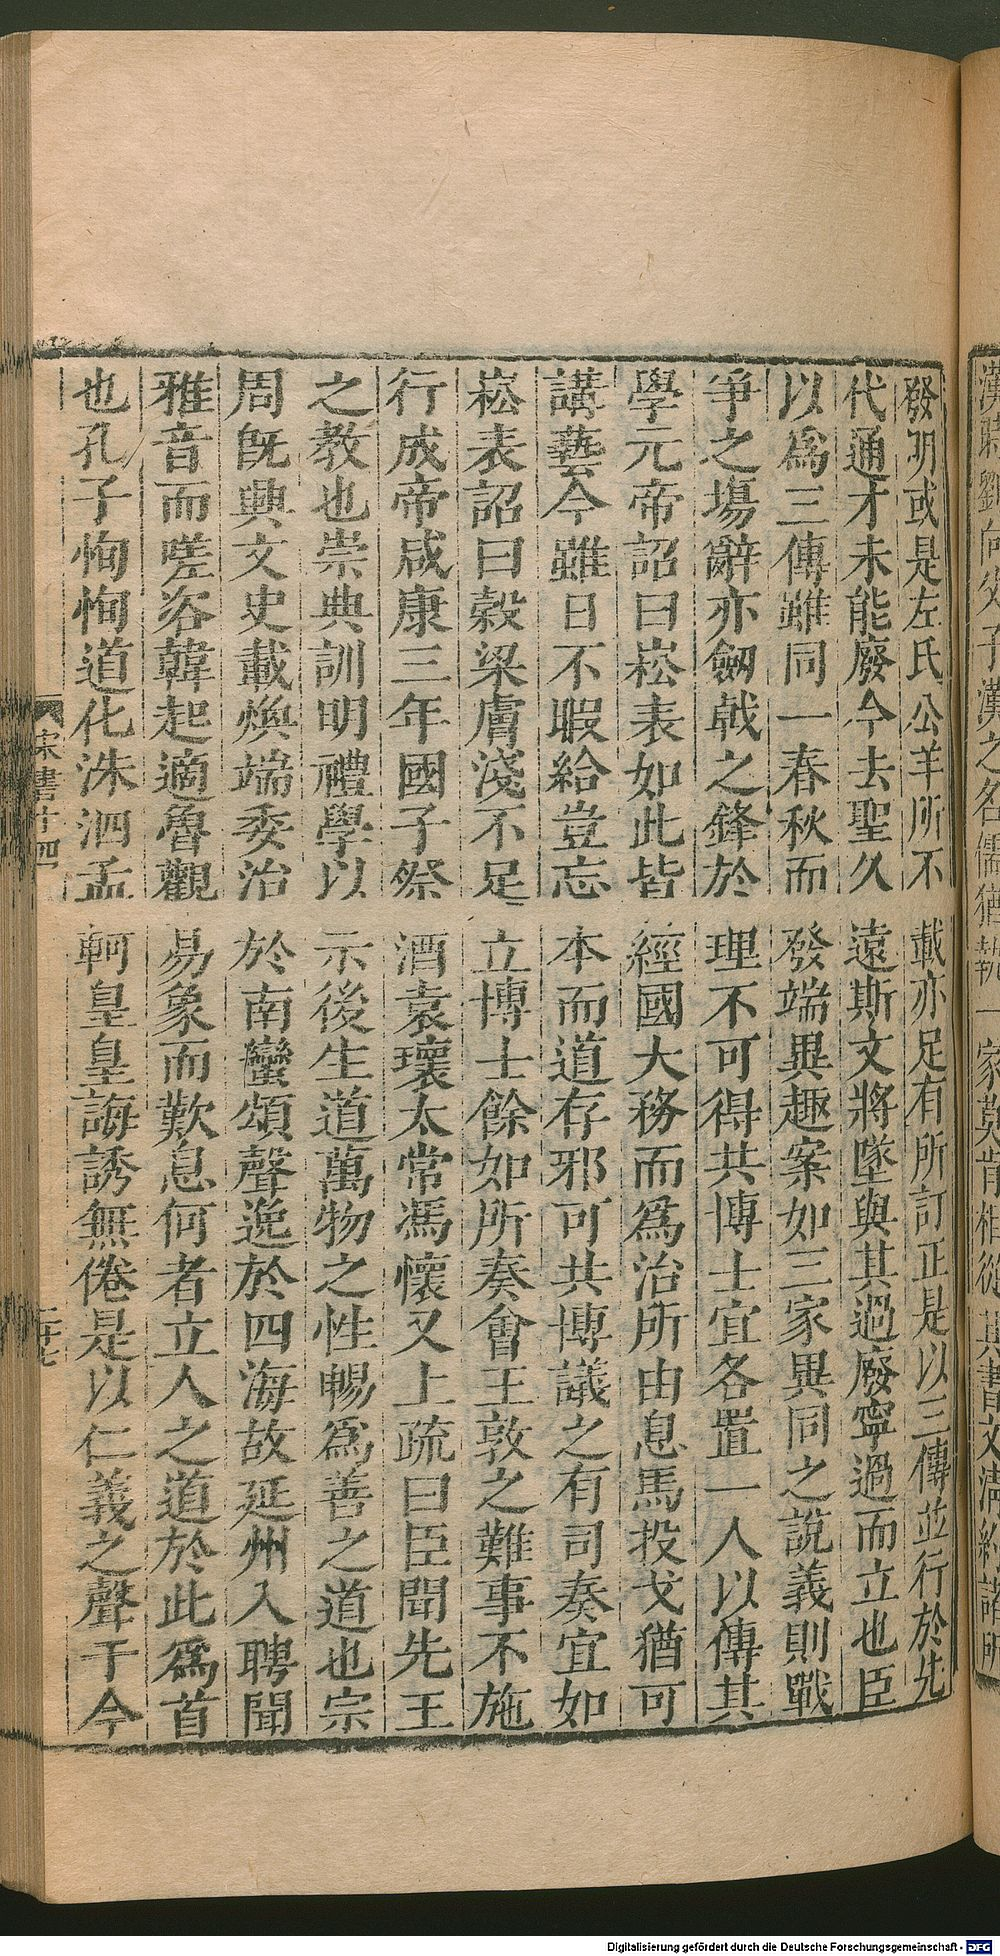 漢時劉向父子漢之名儒猶執一家莫肯相從其書文清約諸所
發明或是左氏公羊所不載亦足有所訂正是以三傳並行於先
代通才未能廢今去聖久遠斯文將墜與其過廢寧過而立也臣
以爲三傳雖同一春秋而發端異趣案如三家異同之說義則戰
爭之場辭亦劒戟之鋒於理不可得共博士宜各置一人以傳其
學元帝詔曰崧表如此皆經國大務而爲治所由息馬投戈猶可
講藝今雖日不暇給豈忘本而道存邪可共博議之有司奏宜如
崧表詔曰穀梁膚淺不足立博士餘如所奏會王敦之難事不施
行成帝咸康三年國子祭酒袁瓌太常馮懷又上疏曰臣聞先王
之教也崇典訓明禮學以示後生道萬物之性暢爲善之道也宗
周旣興文史載煥端委治於南蠻頌聲逸於四海故延州入聘聞
雅音而嗟咨韓起適魯觀易象而歎息何者立人之道於此爲首
也孔子恂恂道化洙泗孟軻皇皇誨誘無倦是以仁義之聲于今
宋書十四
二十七
Digitalisierung gefördert durch die Deutsche Forschungsgemeinschaft - DFG